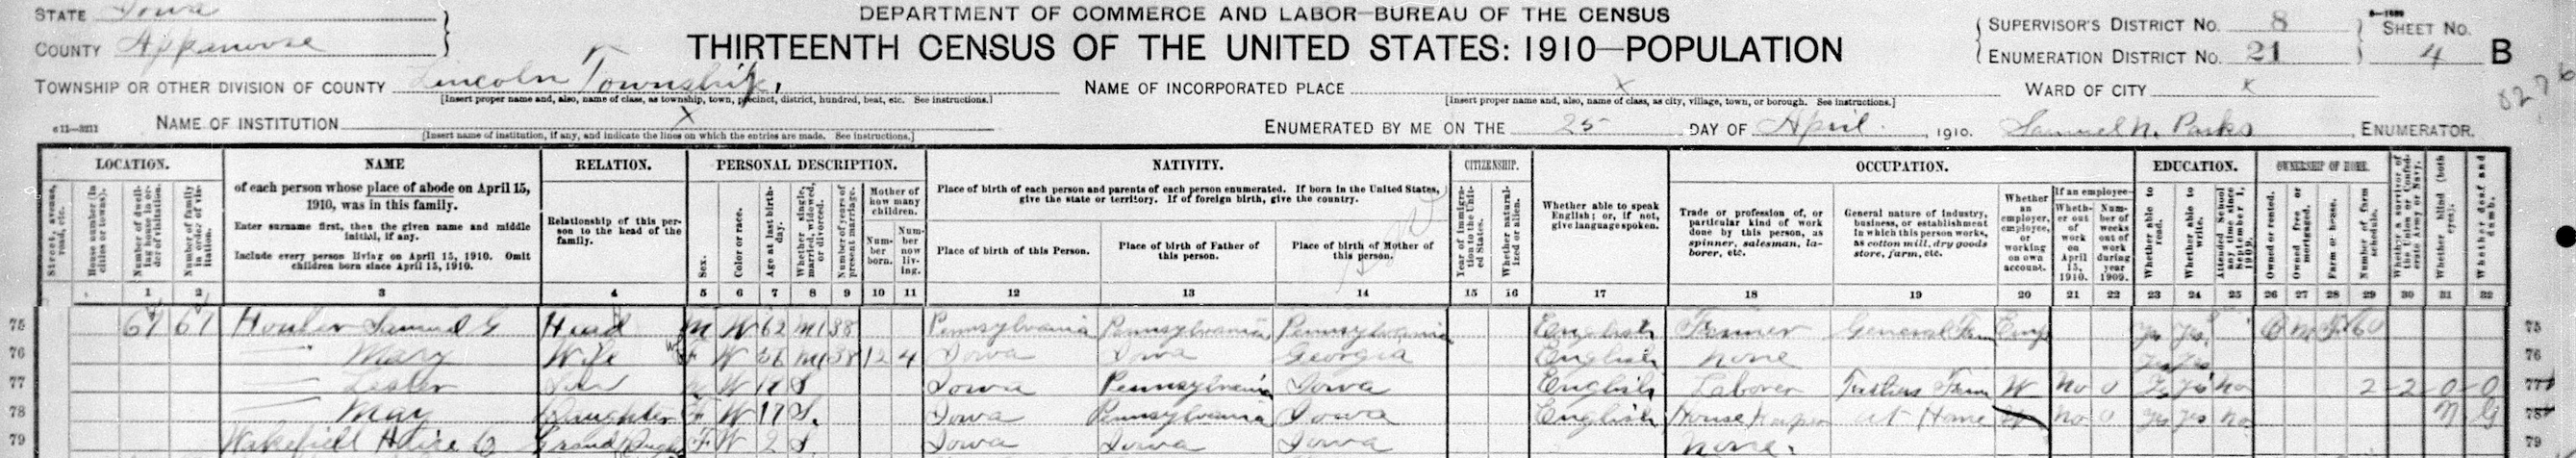 STATE Iowa
DEPARTMENT OF COMMERCE AND LABOR—BUREAU OF THE CENSUS
COUNTY Appanoose
THIRTEENTH CENSUS OF THE UNITED STATES: 1910—POPULATION
SUPERVISOR'S DISTRICT No. 8
ENUMERATION DISTRICT No. 21
SHEET No. 4 B
TOWNSHIP OR OTHER DIVISION OF COUNTY Lincoln Township,
[Insert proper name and, also, name of class, as township, town, precinct, district, hundred, beat, etc. See instructions.]
NAME OF INCORPORATED PLACE x
[Insert proper name and, also, name of class, as city, village, town, or borough. See instructions.]
WARD OF CITY x
NAME OF INSTITUTION x
[Insert name of institution, if any, and indicate the lines on which the entries are made. See instructions.]
ENUMERATED BY ME ON THE 25 DAY OF April, 1910. Samuel N. Parks, ENUMERATOR.
LOCATION.
Street, avenue, road, etc.
House number (in cities or towns).
Number of dwelling house in order of visitation.
Number of family in order of visitation.
NAME
of each person whose place of abode on April 15, 1910, was in this family.
Enter surname first, then the given name and middle initial, if any.
Include every person living on April 15, 1910. Omit children born since April 15, 1910.
RELATION.
Relationship of this person to the head of the family.
PERSONAL DESCRIPTION.
Sex.
Color or race.
Age at last birthday.
Whether single, married, widowed, or divorced.
Number of years of present marriage.
Mother of how many children.
Number born.
Number now living.
NATIVITY.
Place of birth of each person and parents of each person enumerated. If born in the United States, give the state or territory. If of foreign birth, give the country.
Place of birth of this Person.
Place of birth of Father of this person.
Place of birth of Mother of this person.
CITIZENSHIP.
Year of immigration to the United States.
Whether naturalized or alien.
Whether able to speak English; or, if not, give language spoken.
OCCUPATION.
Trade or profession of, or particular kind of work done by this person, as spinner, salesman, laborer, etc.
General nature of industry, business, or establishment in which this person works, as cotton mill, dry goods store, farm, etc.
Whether an employer, employee, or working on own account.
If an employee—
Whether out of work on April 15, 1910.
Number of weeks out of work during year 1909.
EDUCATION.
Whether able to read.
Whether able to write.
Attended school any time since September 1, 1909.
OWNERSHIP OF HOME.
Owned or rented.
Owned free or mortgaged.
Farm or house.
Number of farm schedule.
Whether a survivor of the Union or Confederate Army or Navy.
Whether blind (both eyes).
Whether deaf and dumb.
1 2 3 4 5 6 7 8 9 10 11 12 13 14 15 16 17 18 19 20 21 22 23 24 25 26 27 28 29 30 31 32
75 61 61 Samuel G Head M W 62 M1 38 Pennsylvania Pennsylvania Pennsylvania English Farmer General Farm Emp Yes Yes O M F 60 75
76 Mary Wife F W 56 M1 38 12 4 Iowa Iowa Georgia English none Yes Yes 76
77 Lester Son W S Iowa Pennsylvania Iowa English Laborer Farm W No 0 Yes Yes No 2-2-0-0 77
78 May Daughter F W 17 S. Iowa Pennsylvania Iowa English House Keeper at Home no 0 Yes Yes no 78
79 Wakefield F W 2 S Iowa Iowa Iowa none. 79